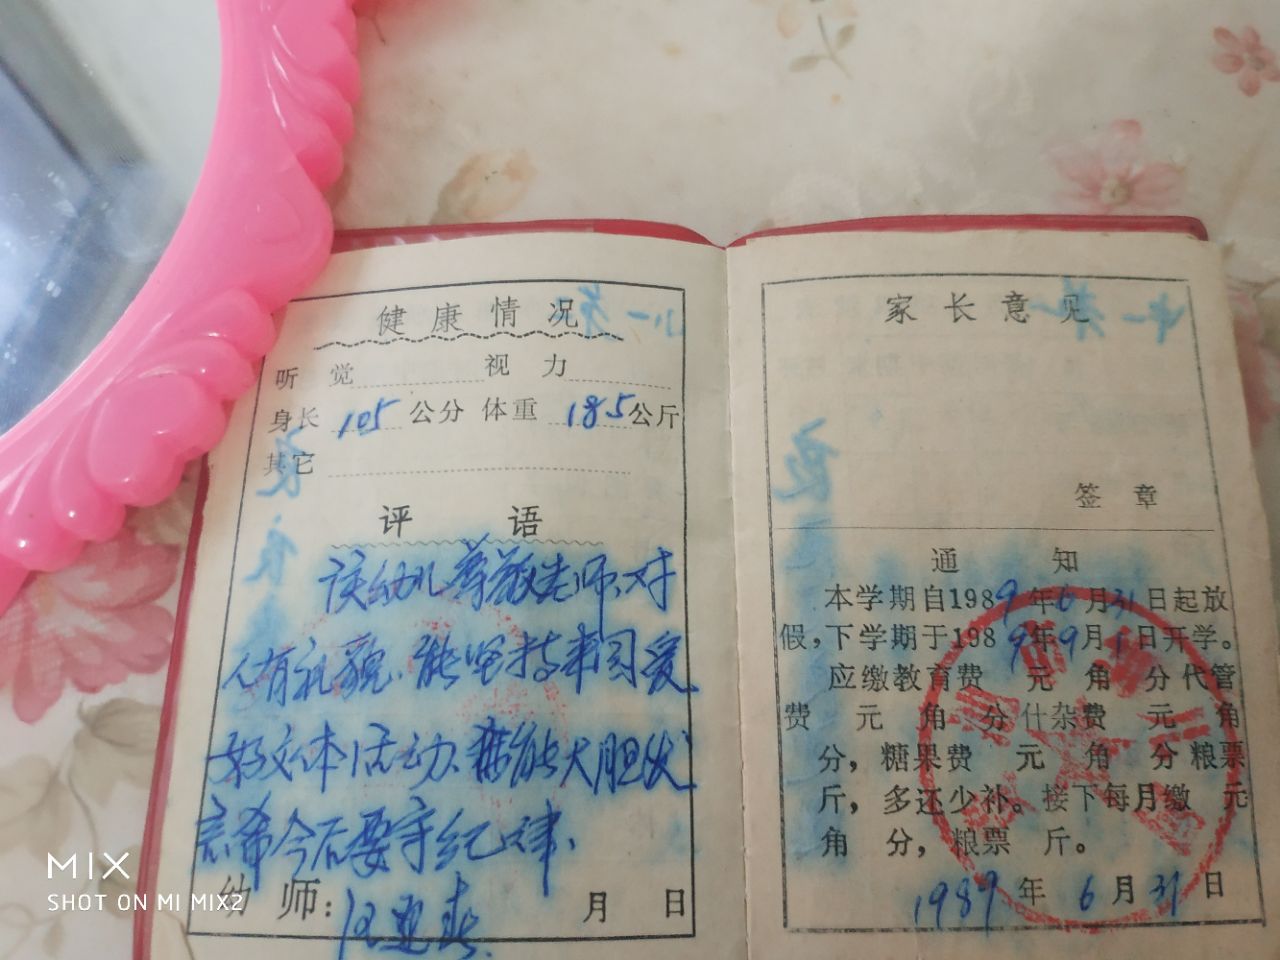 健康情况
听 觉 视 力
身长 105 公分 体重 18.5 公斤
其它
评 语
该幼儿尊敬老师、对
人有礼貌、能坚持来园爱
好文体活动、能大胆发
言希今后要守纪律、
幼 师: 月 日
家长意见
签 章
通 知
本学期自1989年6月31日起放
假,下学期于1989年9月1日开学。
应缴教育费 元 角 分代管
费 元 角 分什杂费 元 角
分,糖果费 元 角 分粮票
斤,多还少补。接下每月缴 元
角 分,粮票 斤。
1989年 6月31日
MIX
SHOT ON MI MIX2